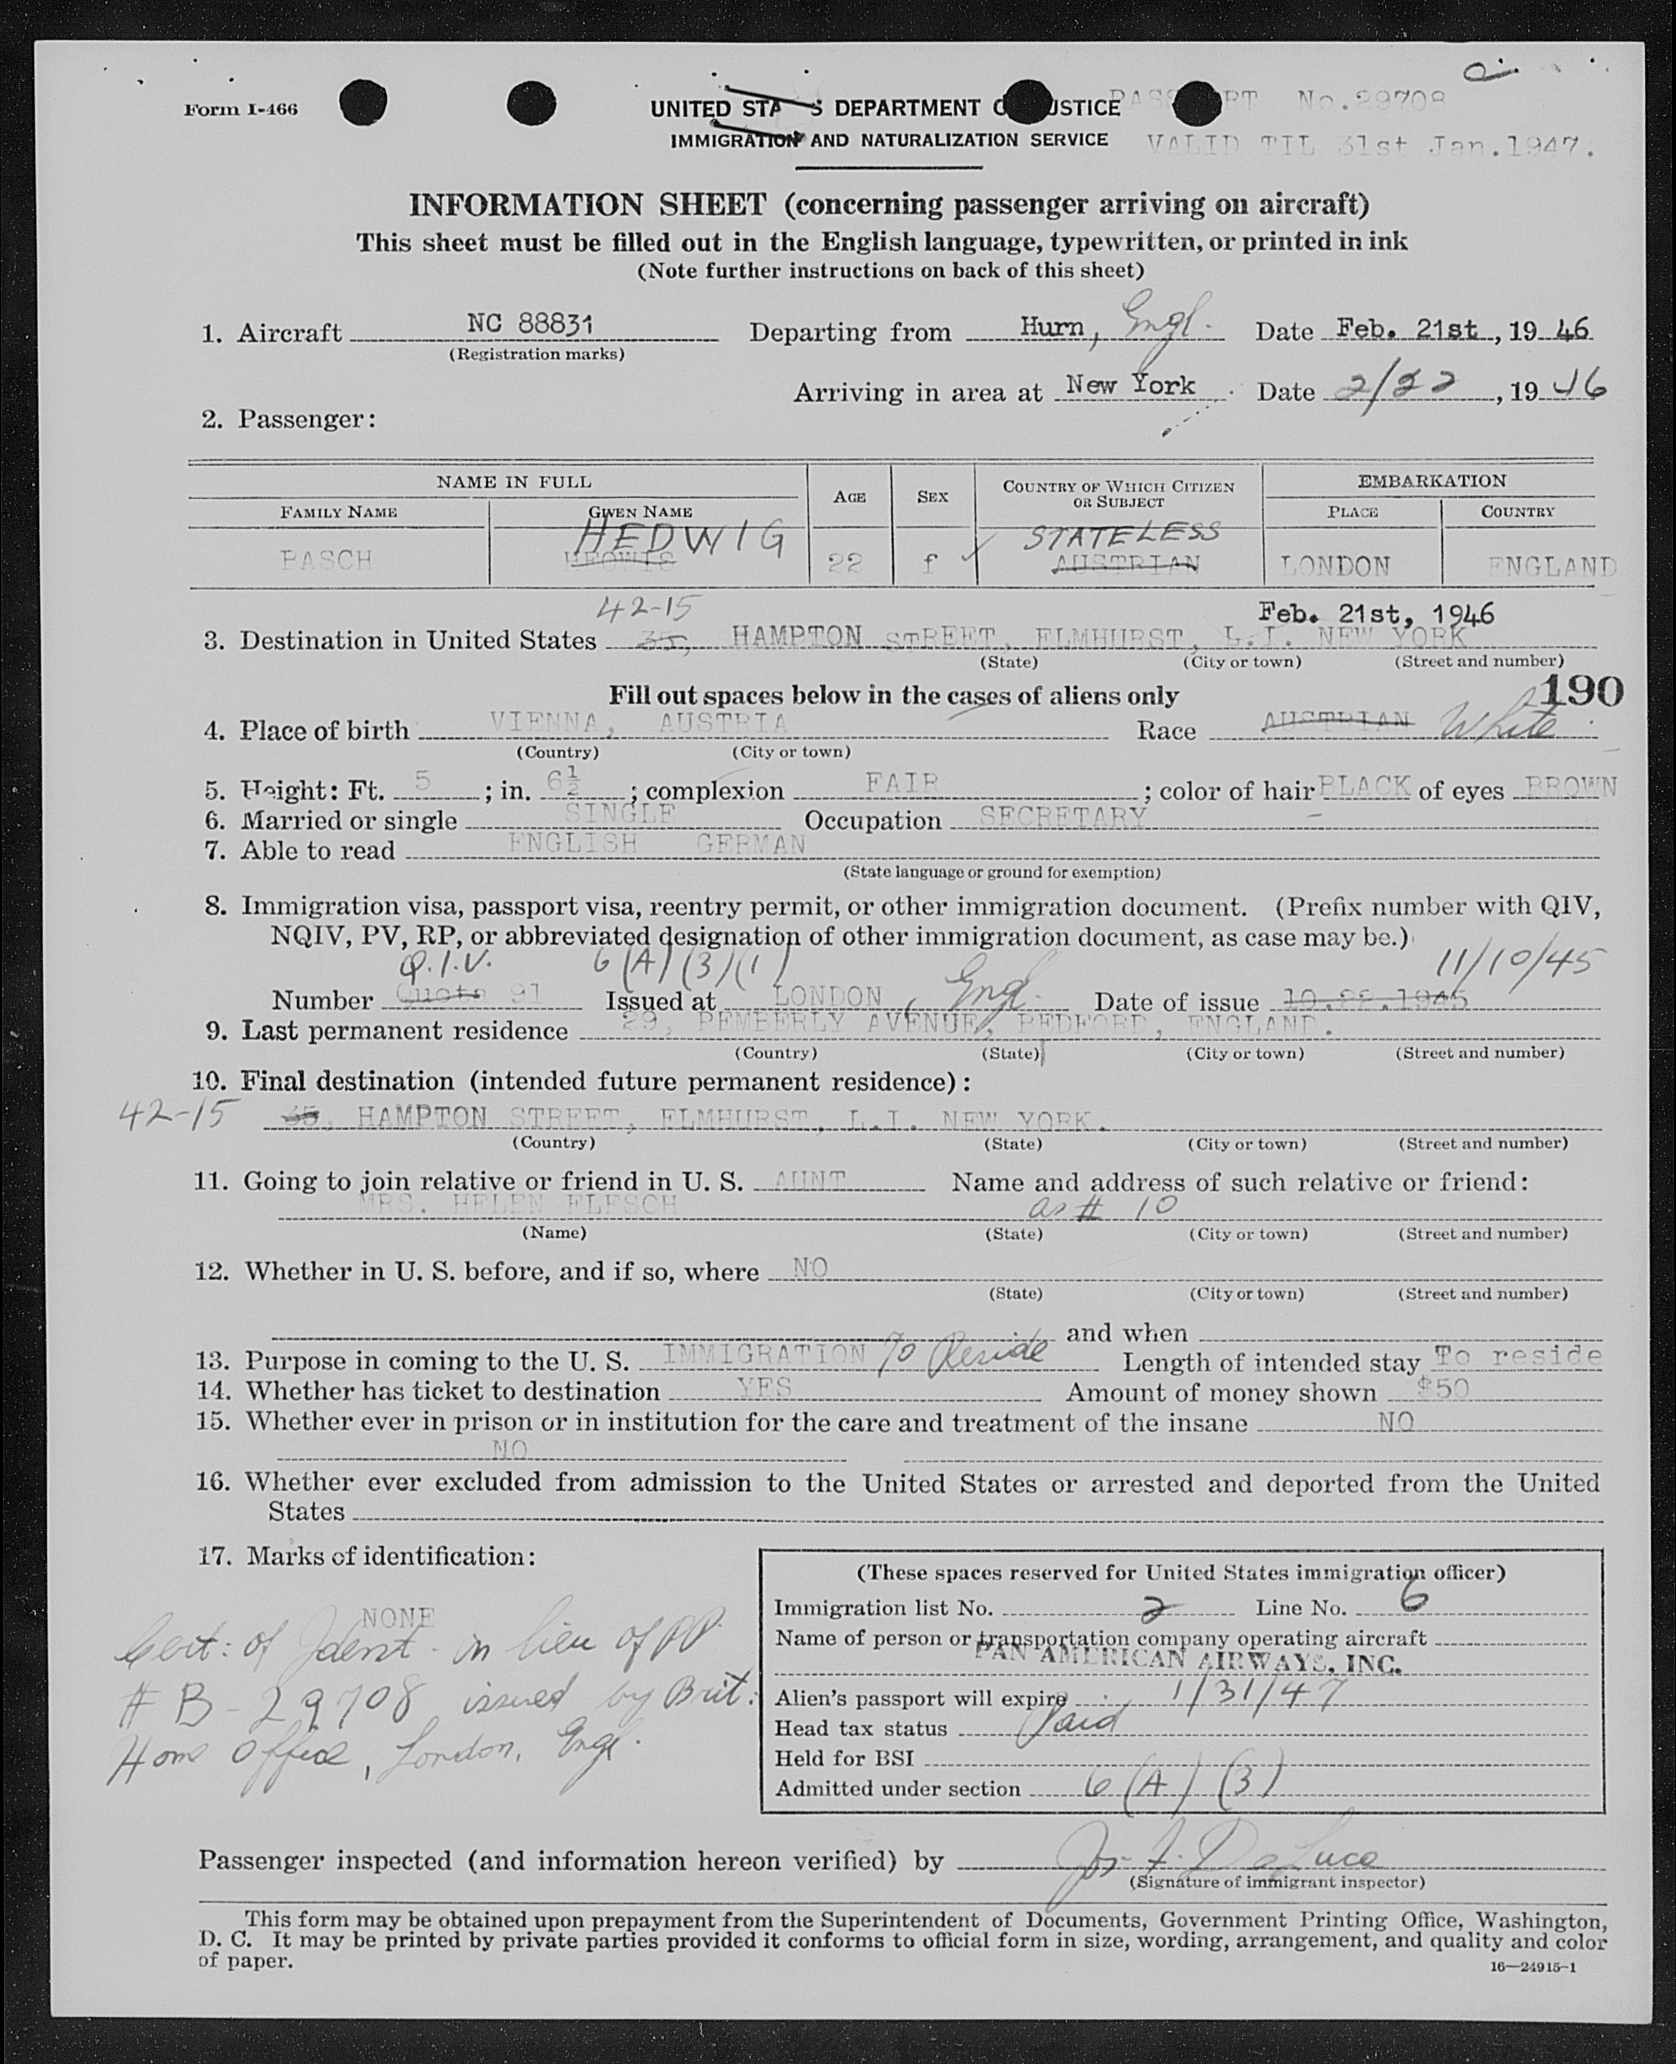 Form I-466
PASSPORT No. 29708
UNITED STATES DEPARTMENT OF JUSTICE
IMMIGRATION AND NATURALIZATION SERVICE
VALID TIL 31st Jan. 1947.
INFORMATION SHEET (concerning passenger arriving on aircraft)
This sheet must be filled out in the English language, typewritten, or printed in ink
(Note further instructions on back of this sheet)
1. Aircraft NC 88831 Departing from Hurn, Engl. Date Feb. 21st, 1946
(Registration marks)
Arriving in area at New York Date 2/22, 1946
2. Passenger:
NAME IN FULL AGE SEX COUNTRY OF WHICH CITIZEN OR SUBJECT EMBARKATION
FAMILY NAME GIVEN NAME PLACE COUNTRY
HEDWIG STATELESS
PASCH 22 f ✓ AUSTRIAN LONDON ENGLAND
42-15 Feb. 21st, 1946
3. Destination in United States 35, HAMPTON STREET, ELMHURST, L.I. NEW YORK
(State) (City or town) (Street and number)
Fill out spaces below in the cases of aliens only 190
4. Place of birth VIENNA, AUSTRIA Race AUSTRIAN White
(Country) (City or town)
5. Height: Ft. 5; in. 6½; complexion FAIR; color of hair BLACK of eyes BROWN
6. Married or single SINGLE Occupation SECRETARY
7. Able to read ENGLISH GERMAN
(State language or ground for exemption)
8. Immigration visa, passport visa, reentry permit, or other immigration document. (Prefix number with QIV,
NQIV, PV, RP, or abbreviated designation of other immigration document, as case may be.)
Q.I.V. 6(A)(3)(1) 11/10/45
Number Quota 91 Issued at LONDON, Engl. Date of issue 10.22.1945
9. Last permanent residence 29, PEMBERLY AVENUE, BEDFORD, ENGLAND.
(Country) (State) (City or town) (Street and number)
10. Final destination (intended future permanent residence):
42-15 35, HAMPTON STREET, ELMHURST, L.I. NEW YORK.
(Country) (State) (City or town) (Street and number)
11. Going to join relative or friend in U. S. AUNT Name and address of such relative or friend:
MRS. HELEN FLESCH as # 10
(Name) (State) (City or town) (Street and number)
12. Whether in U. S. before, and if so, where NO
(State) (City or town) (Street and number)
and when
13. Purpose in coming to the U. S. IMMIGRATION To Reside Length of intended stay To reside
14. Whether has ticket to destination YES Amount of money shown $50
15. Whether ever in prison or in institution for the care and treatment of the insane NO
NO
16. Whether ever excluded from admission to the United States or arrested and deported from the United
States
17. Marks of identification:
NONE
Cert: of Ident - in lieu of PP.
# B-29708 issued by Brit:
Home Office, London, Engl.
(These spaces reserved for United States immigration officer)
Immigration list No. 2 Line No. 6
Name of person or transportation company operating aircraft
PAN AMERICAN AIRWAYS, INC.
Alien's passport will expire 1/31/47
Head tax status Paid
Held for BSI
Admitted under section 6(A)(3)
Passenger inspected (and information hereon verified) by Jos. F. DeLuca
(Signature of immigrant inspector)
This form may be obtained upon prepayment from the Superintendent of Documents, Government Printing Office, Washington,
D. C. It may be printed by private parties provided it conforms to official form in size, wording, arrangement, and quality and color
of paper.
16—24915-1